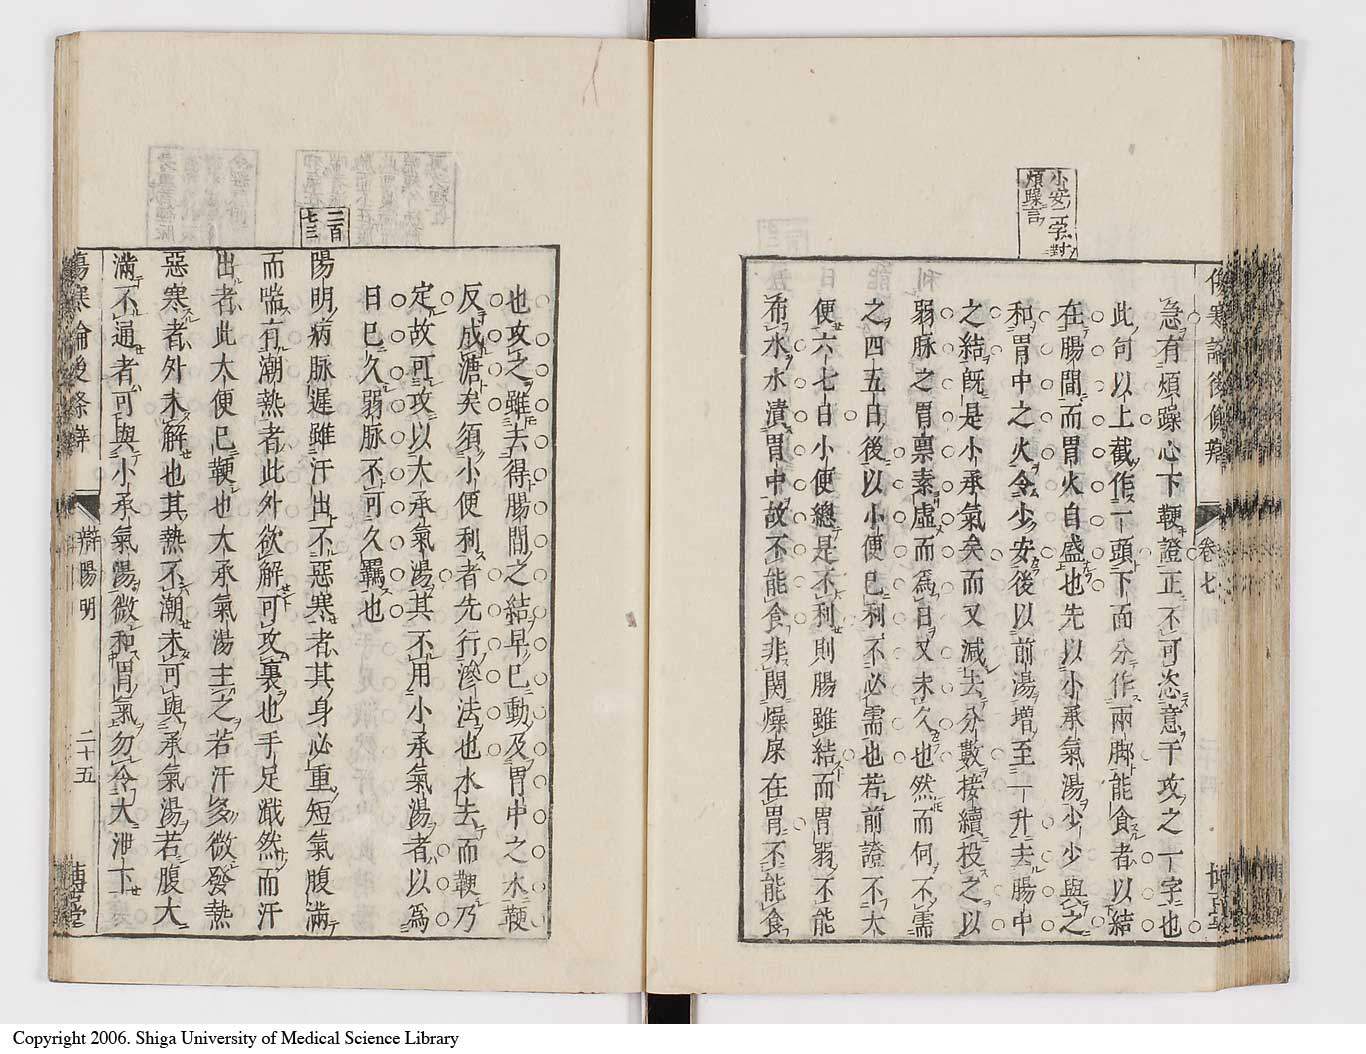 小安二字對
煩躁言
傷寒論後條辨
卷七
急有煩躁心下鞕證正不可恣意于攻之一字也
此句以上截作一頭下面分作兩脚能食者以結
在腸間而胃火自盛也先以小承氣湯少少與之
和胃中之火令少安後以前湯增至一升去腸中
之結既是小承氣矣而又減去分數接續投之以
弱脉之胃稟素虛而爲日又未久也然而何不需
之四五日後以小便已利不必需也若前證不大
便六七日小便總是不利則腸雖結而胃弱不能
布水水漬胃中故不能食非関燥屎在胃不能食
也攻之雖去得腸間之結早已動及胃中之水鞕
反成溏矣須小便利者先行滲法也水去而鞕乃
定故可攻以大承氣湯其不用小承氣湯者以爲
日已久弱脉不可久羈也
二百
七三
陽明病脉遲雖汗出不惡寒者其身必重短氣腹滿
而喘有潮熱者此外欲解可攻裏也手足濈然而汗
出者此大便已鞕也大承氣湯主之若汗多微發熱
惡寒者外未解也其熱不潮未可與承氣湯若腹大
滿不通者可與小承氣湯微和胃氣勿令大泄下
傷寒論後條辨
辨陽明
二十五
博古堂